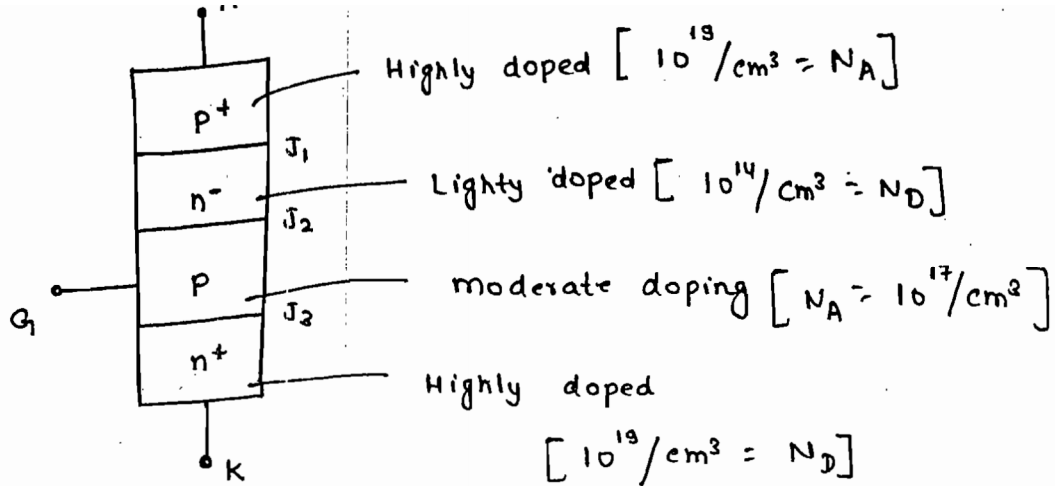 p+
Highly doped [ 10^19/cm³ = N_A ]
J₁
n-
Lighty doped [ 10^14/cm³ = N_D ]
J₂
p
moderate doping [ N_A = 10^17/cm³ ]
G
J₃
n+
Highly doped
[ 10^19/cm³ = N_D ]
K